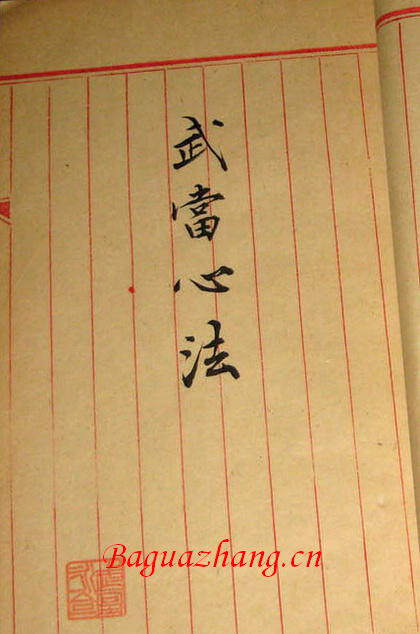 武當心法
Baguazhang.cn